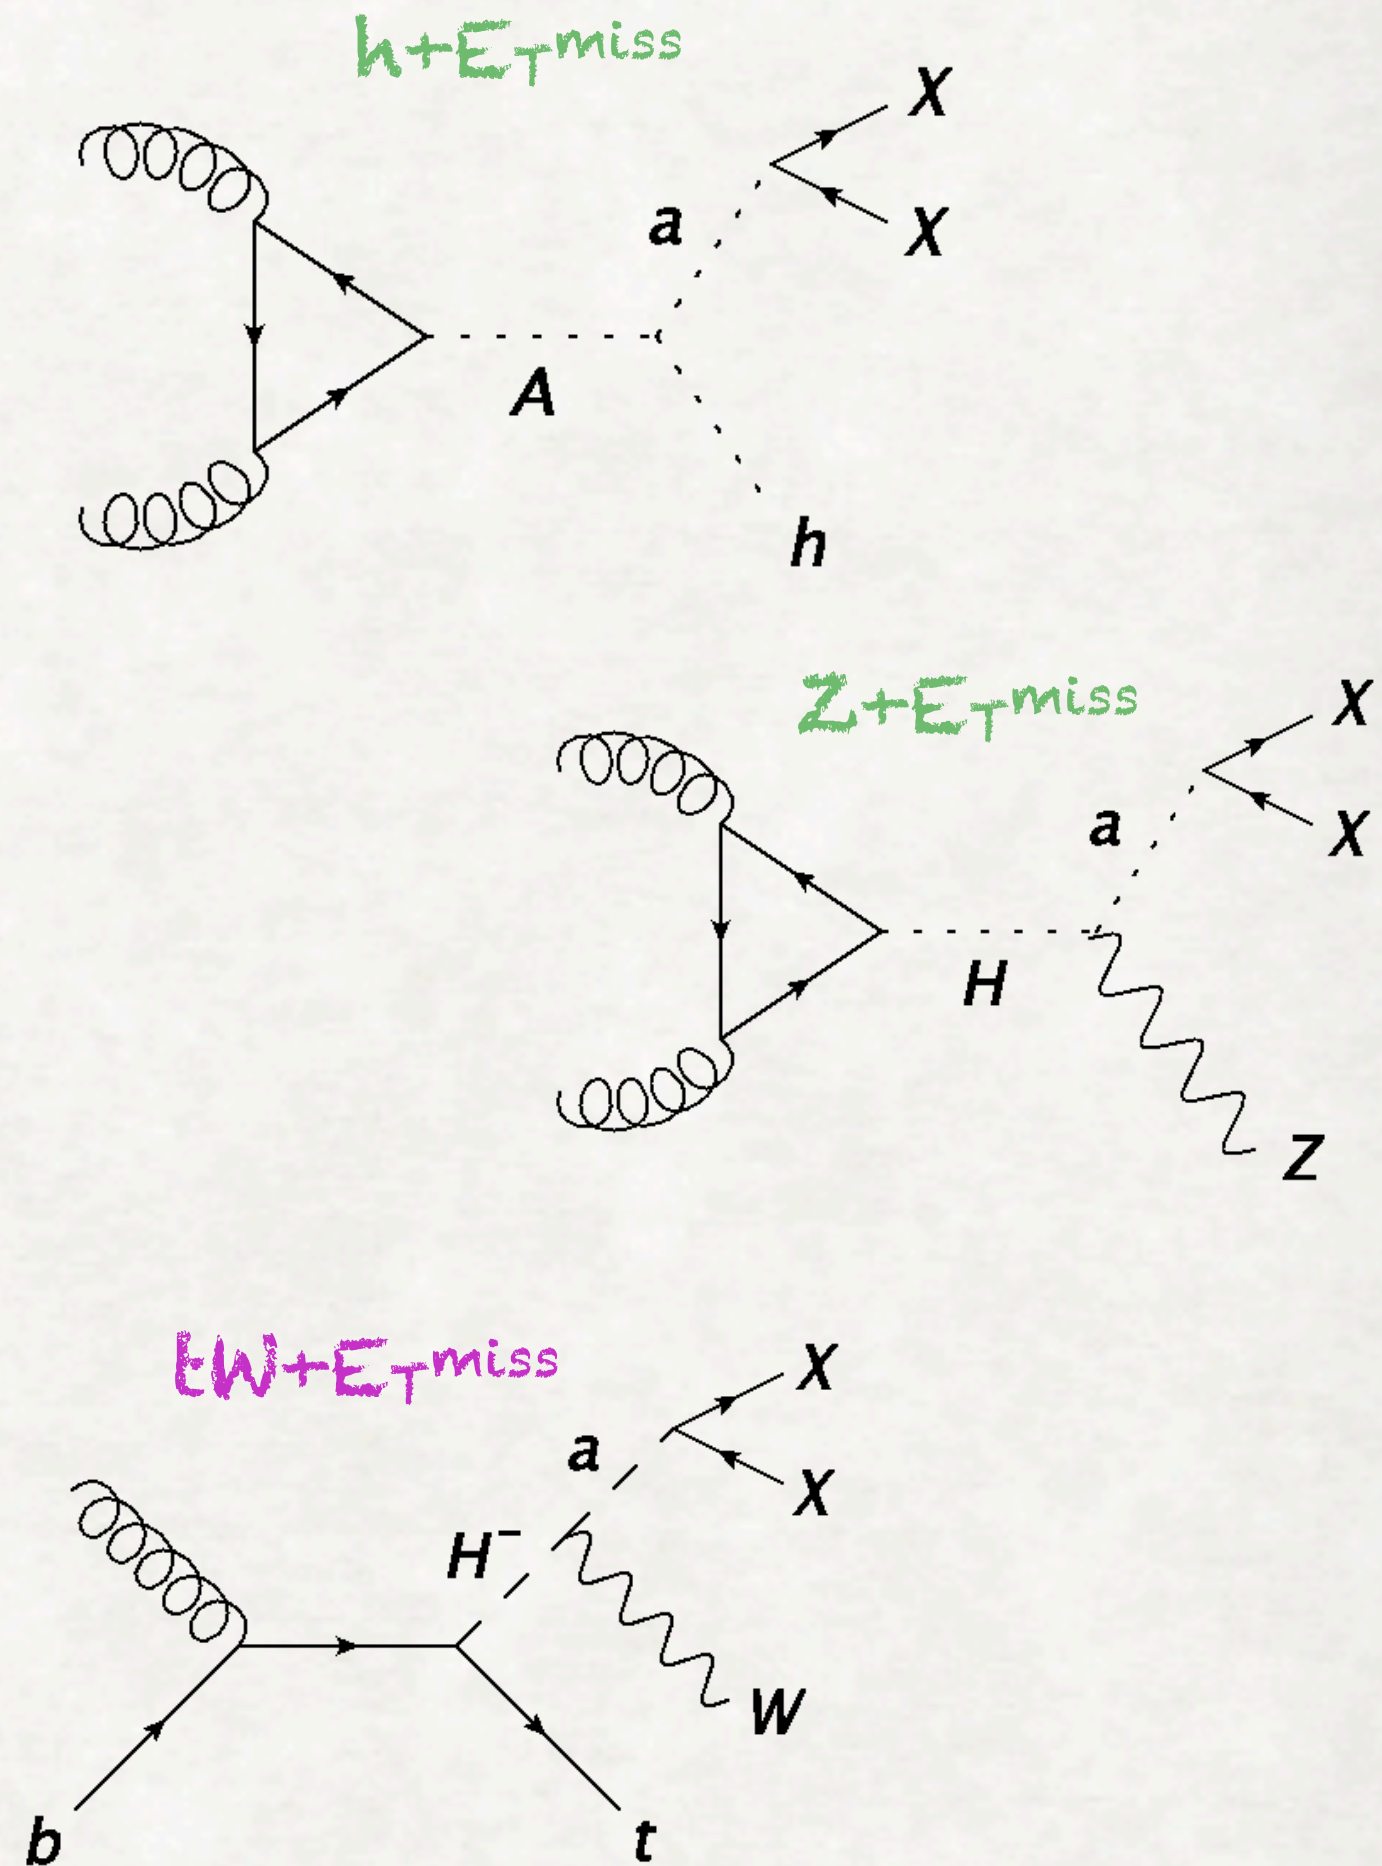 h+E_T^miss
X
a
X
A
h
Z+E_T^miss
X
a
X
H
Z
tW+E_T^miss
X
a
X
H^-
W
b
t